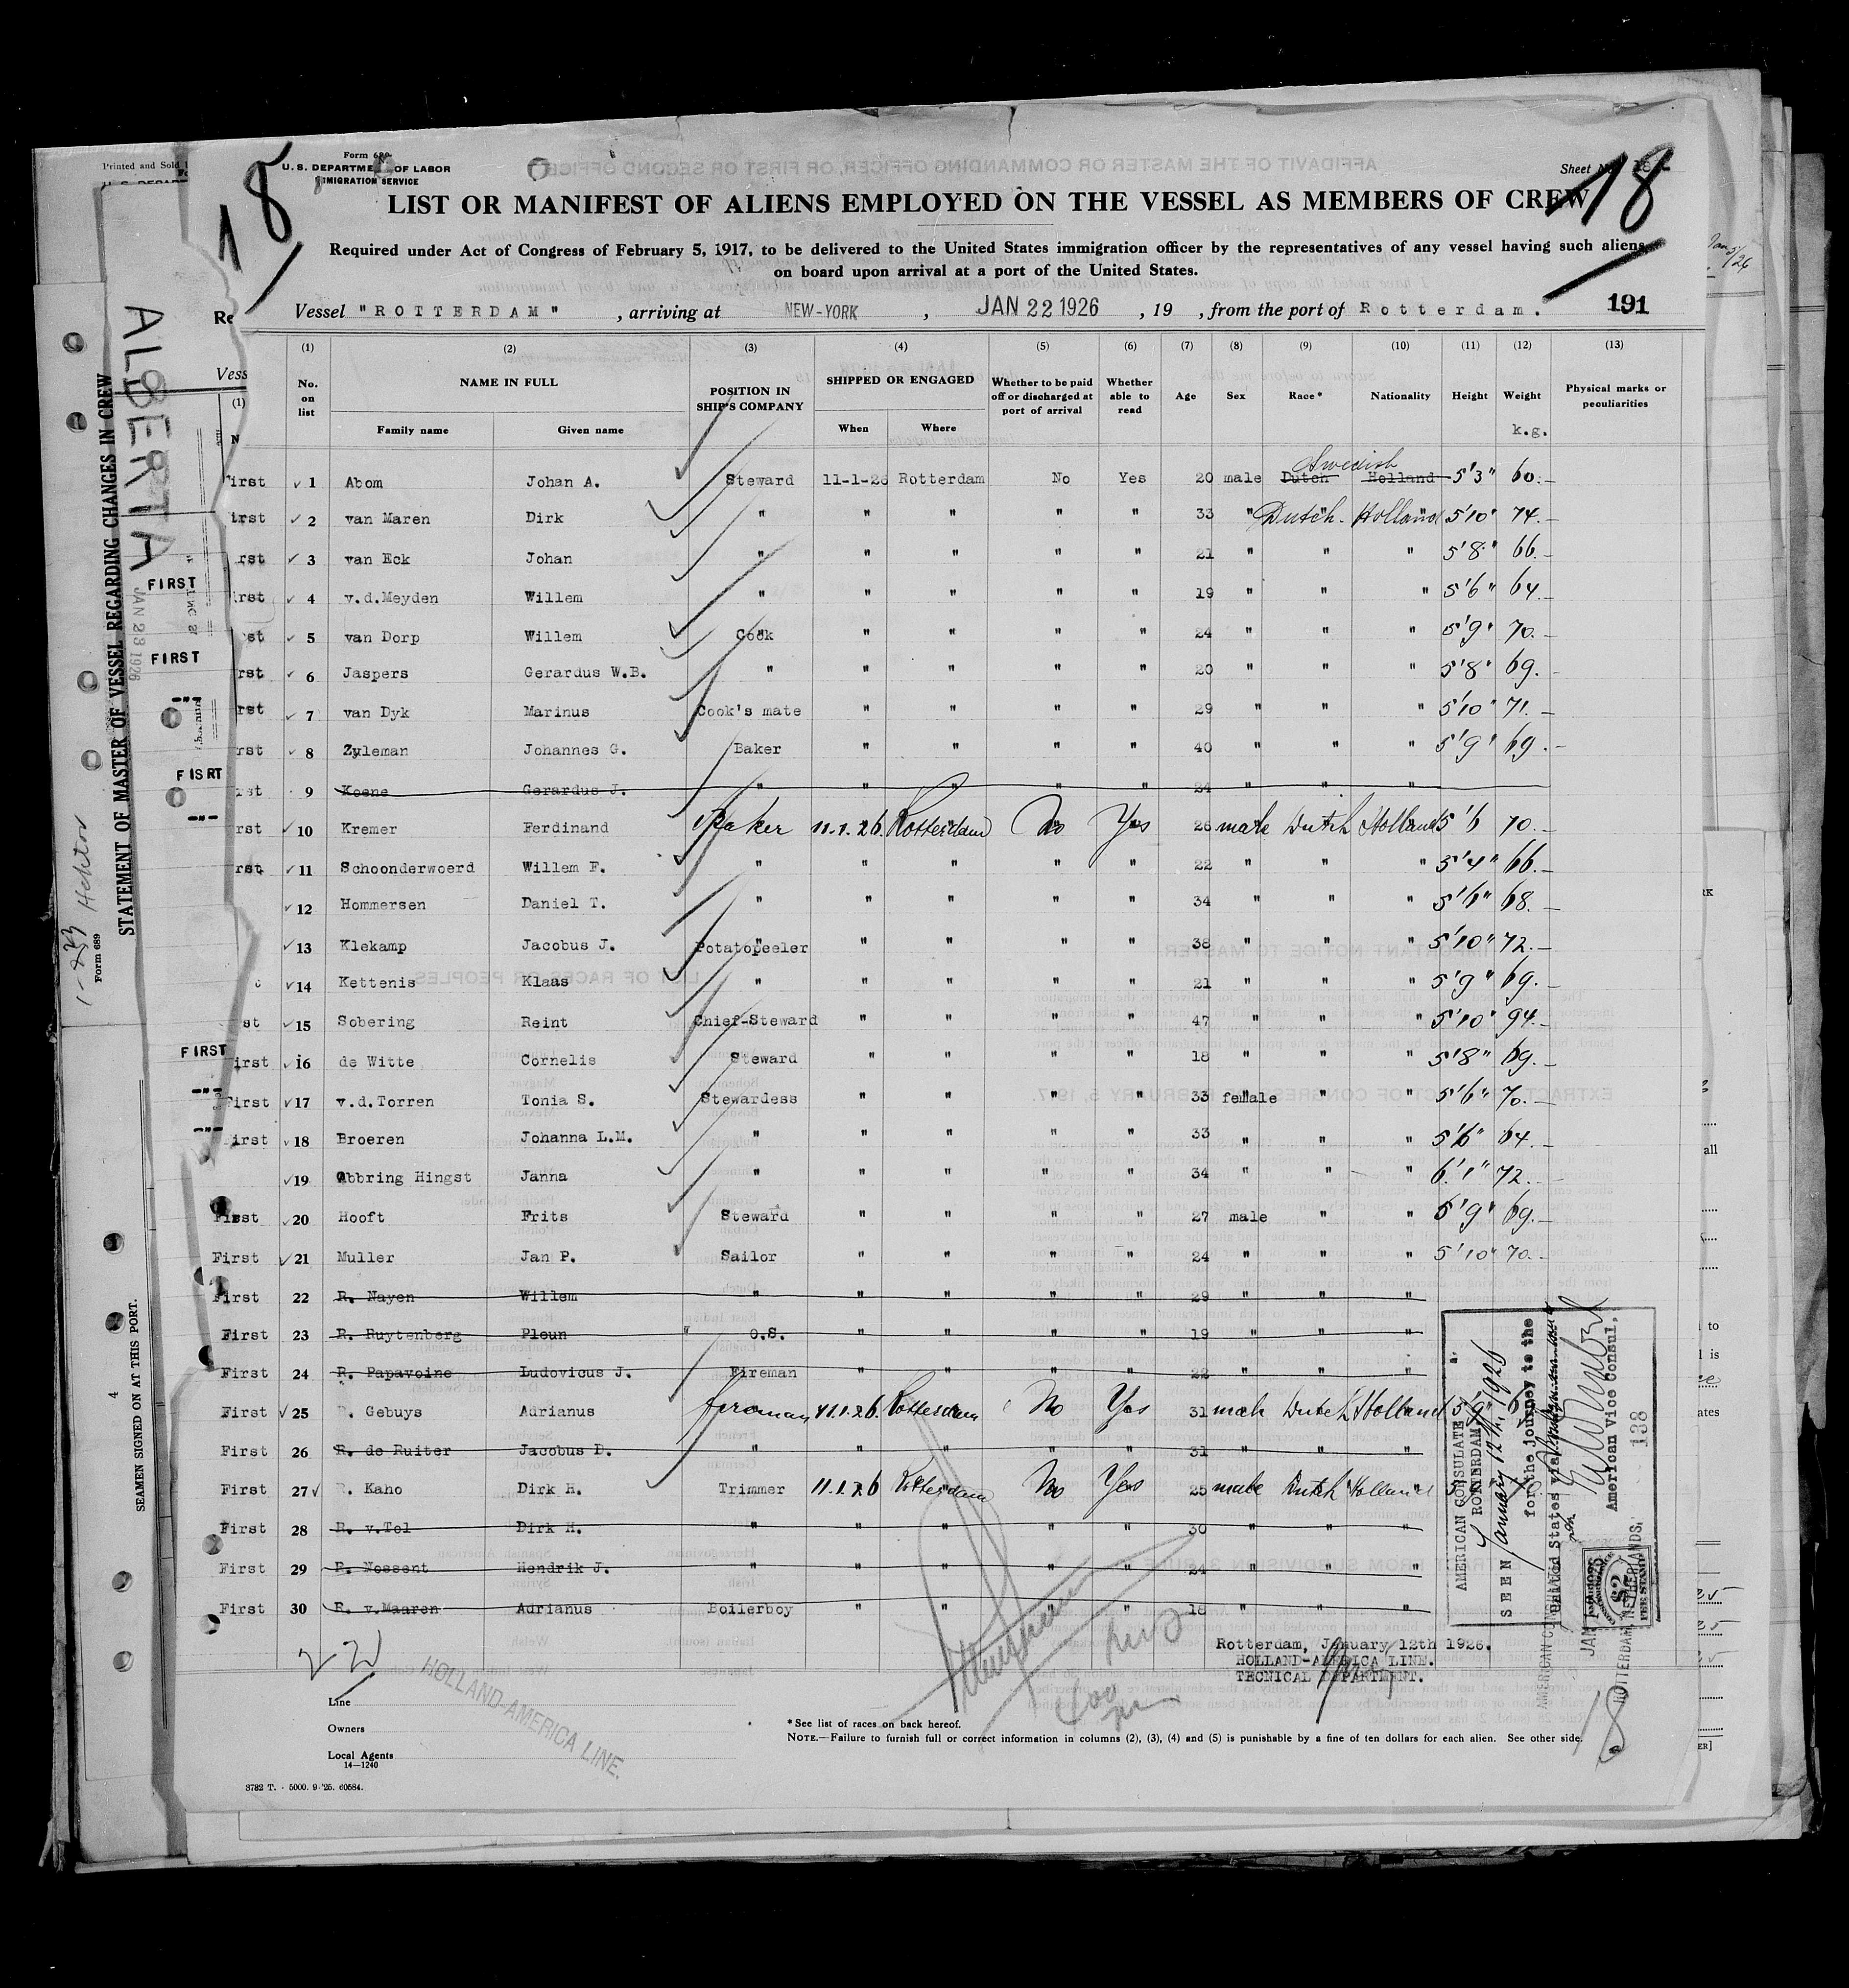 Form 689
U. S. DEPARTMENT OF LABOR
IMMIGRATION SERVICE
18
Sheet No. 18
18
LIST OR MANIFEST OF ALIENS EMPLOYED ON THE VESSEL AS MEMBERS OF CREW
Required under Act of Congress of February 5, 1917, to be delivered to the United States immigration officer by the representatives of any vessel having such aliens
on board upon arrival at a port of the United States.
Vessel "ROTTERDAM" , arriving at NEW-YORK , JAN 22 1926 , 19 , from the port of Rotterdam. 191
(1) (2) (3) (4) (5) (6) (7) (8) (9) (10) (11) (12) (13)
No. on list NAME IN FULL Family name Given name POSITION IN SHIP'S COMPANY SHIPPED OR ENGAGED When Where Whether to be paid off or discharged at port of arrival Whether able to read Age Sex Race* Nationality Height Weight k.g. Physical marks or peculiarities
Swedish
irst 1 Abom Johan A. Steward 11-1-26 Rotterdam No Yes 20 male Dutch Holland 5'3" 60.-
irst 2 van Maren Dirk " " " " " 33 " Dutch. Holland 5'10" 74.-
rst 3 van Eck Johan " " " " " 21 " " " 5'8" 66.-
irst 4 v.d.Meyden Willem " " " " " 19 " " " 5'6" 64.-
st 5 van Dorp Willem Cook " " " " 24 " " " 5'9" 70.-
rst 6 Jaspers Gerardus W.B. " " " " " 20 " " " 5'8" 69.-
rst 7 van Dyk Marinus Cook's mate " " " " 29 " " " 5'10" 71.-
rst 8 Zyleman Johannes G. Baker " " " " 40 " " " 5'9" 69.-
rst 9 Koene Gerardus J. " " " " " 24 " " "
rst 10 Kremer Ferdinand Baker 11.1.26. Rotterdam No Yes 26 male Dutch Holland 5'6 70.-
rst 11 Schoonderwoerd Willem F. " " " " " 22 " " " 5'4" 66.-
12 Hommersen Daniel T. " " " " " 34 " " " 5'6" 68.-
13 Klekamp Jacobus J. Potatopeeler " " " " 38 " " " 5'10" 72.-
14 Kettenis Klaas " " " " " 21 " " " 5'9" 69.-
st 15 Sobering Reint Chief-Steward " " " " 47 " " " 5'10" 94.-
irst 16 de Witte Cornelis Steward " " " " 18 " " " 5'8" 69.-
First 17 v.d.Torren Tonia S. Stewardess " " " " 33 female " " 5'6" 70.-
irst 18 Broeren Johanna L.M. " " " " " 33 " " " 5'6" 64.-
19 Abbring Hingst Janna " " " " " 34 " " " 6'1" 72.-
First 20 Hooft Frits Steward " " " " 27 male " " 5'9" 69.-
First 21 Muller Jan P. Sailor " " " " 24 " " " 5'10" 70.-
First 22 R. Nayen Willem " " " " " 29 " " "
First 23 R. Ruytenberg Pleun O.S. " " " " 19 " " "
First 24 R. Papavoine Ludovicus J. Fireman " " " " 22 " " "
First 25 R. Gebuys Adrianus fireman 11.1.26. Rotterdam No Yes 31 male Dutch Holland 5'9"
First 26 R. de Ruiter Jacobus D. " " " " " 31 " " "
First 27 R. Kaho Dirk H. Trimmer 11.1.26 Rotterdam No Yes 25 male Dutch Holland
First 28 R. v.Tol Dirk H. " " " " " 30 " " "
First 29 R. Nossent Hendrik J. " " " " " 24 " " "
First 30 R. v.Maaren Adrianus Boilerboy " " " " 18 " " "
AMERICAN CONSULATE
ROTTERDAM
SEEN January 12th, 1926
for the journey to the
United States via
American Vice Consul,
138
ROTTERDAM, NETHERLANDS.
AMERICAN
$2
FEE STAMP
Rotterdam, January 12th 1926.
HOLLAND-AMERICA LINE.
TECNICAL DEPARTMENT.
HOLLAND-AMERICA LINE.
Line
Owners
Local Agents
14—1240
*See list of races on back hereof.
NOTE.—Failure to furnish full or correct information in columns (2), (3), (4) and (5) is punishable by a fine of ten dollars for each alien. See other side.
3782 T. - 5000. 9-'25. 60584.
18
Printed and Sold
ALBERTA
JAN 23 1926
STATEMENT OF MASTER OF VESSEL REGARDING CHANGES IN CREW
Form 689
1-23 Hektor
SEAMEN SIGNED ON AT THIS PORT.
4
Vess
(1)
FIRST
FIRST
FISRT
FIRST